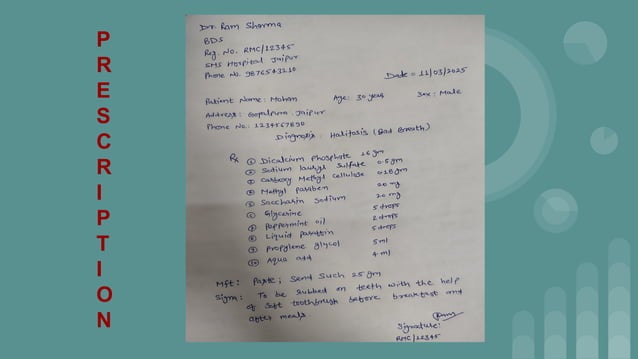 PRESCRIPTION
Dr. Ram Sharma
BDS
Reg. No. RMC/12345
SMS Hospital Jaipur
Phone No. 9876543210
Date = 11/03/2025
Patient Name: Mohan Age: 30 years Sex: Male
Address: Gopalpura, Jaipur
Phone No: 1234567890
Diagnosis: Halitosis (Bad Breath)
Rx ① Dicalcium Phosphate 16 gm
② Sodium lauryl Sulfate 0.5 gm
③ Carboxy Methyl cellulose 0.18 gm
④ Methyl Paraben 20 mg
⑤ Saccharin Sodium 20 mg
⑥ Glycerine 5 drops
⑦ Peppermint oil 2 drops
⑧ Liquid paraffin 5 drops
⑨ Propylene glycol 5 ml
⑩ Aqua add 4 ml
Mft: Paste; Send Such 25 gm
Signa: To be rubbed on teeth with the help
of Soft toothbrush before breakfast and
after meals.
Signature:
RMC/12345